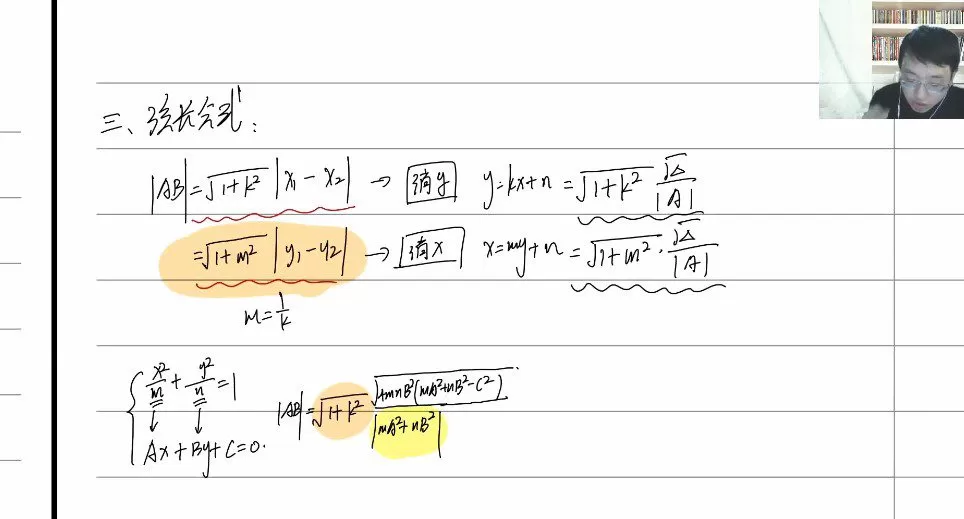 三、弦长公式:
|AB|=√(1+k²) |x₁-x₂| → 消y y=kx+n =√(1+k²) √Δ/|A|
=√(1+m²) |y₁-y₂| → 消x x=my+n =√(1+m²)·√Δ/|A|
m=1/k
{ x²/m + y²/n =1 |AB|=√(1+k²) √(4mnB²(mA²+nB²-C²))/|mA²+nB²|
Ax+By+C=0.